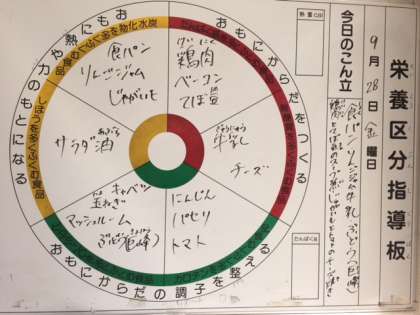 栄養区分指導板
9月28日金曜日
今日のこん立
食パン リンゴジャム 牛乳 ぶどう(巨峰)
熱量
たんぱく質
おもにからだをつくる
おもにからだの調子を整える
おもに熱や力のもとになる
炭水化物を多くふくむ食品
しぼうを多くふくむ食品
食パン
リンゴジャム
じゃがいも
けいにく
鶏肉
ベーコン
てぼ豆
サラダ油
あぶら
ぎゅうにゅう
牛乳
チーズ
キャベツ
玉ねぎ
マッシュルーム
ぶどう(巨峰)
にんじん
パセリ
トマト